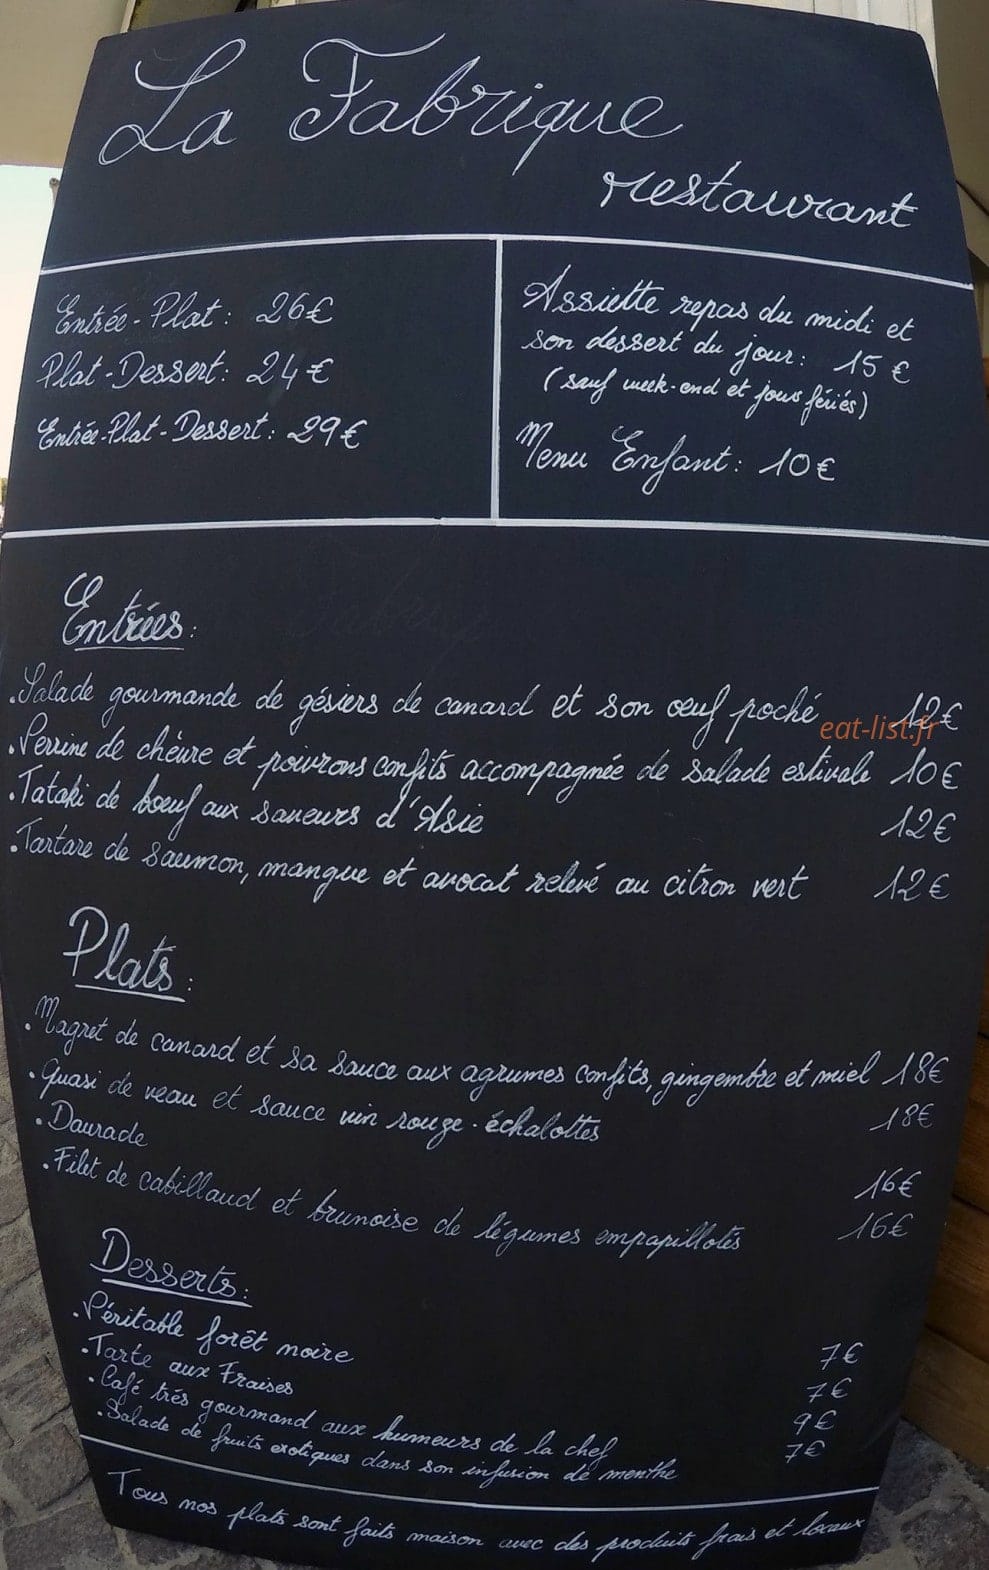 La Fabrique
restaurant
Entrée-Plat: 26€
Plat-Dessert: 24€
Entrée-Plat-Dessert: 29€
Assiette repas du midi et
son dessert du jour: 15€
(sauf week-end et jours fériés)
Menu Enfant: 10€
Entrées:
.Salade gourmande de gésiers de canard et son œuf poché 12€
eat-list.fr
.Verrine de chèvre et poivrons confits accompagnée de salade estivale 10€
.Tataki de bœuf aux saveurs d'Asie 12€
.Tartare de saumon, mangue et avocat relevé au citron vert 12€
Plats:
.Magret de canard et sa sauce aux agrumes confits, gingembre et miel 18€
.Quasi de veau et sauce vin rouge-échalottes 18€
.Daurade 16€
.Filet de cabillaud et brunoise de légumes empapillotés 16€
Desserts:
.Véritable forêt noire 7€
.Tarte aux Fraises 7€
.Café très gourmand aux humeurs de la chef 9€
.Salade de fruits exotiques dans son infusion de menthe 7€
Tous nos plats sont faits maison avec des produits frais et locaux